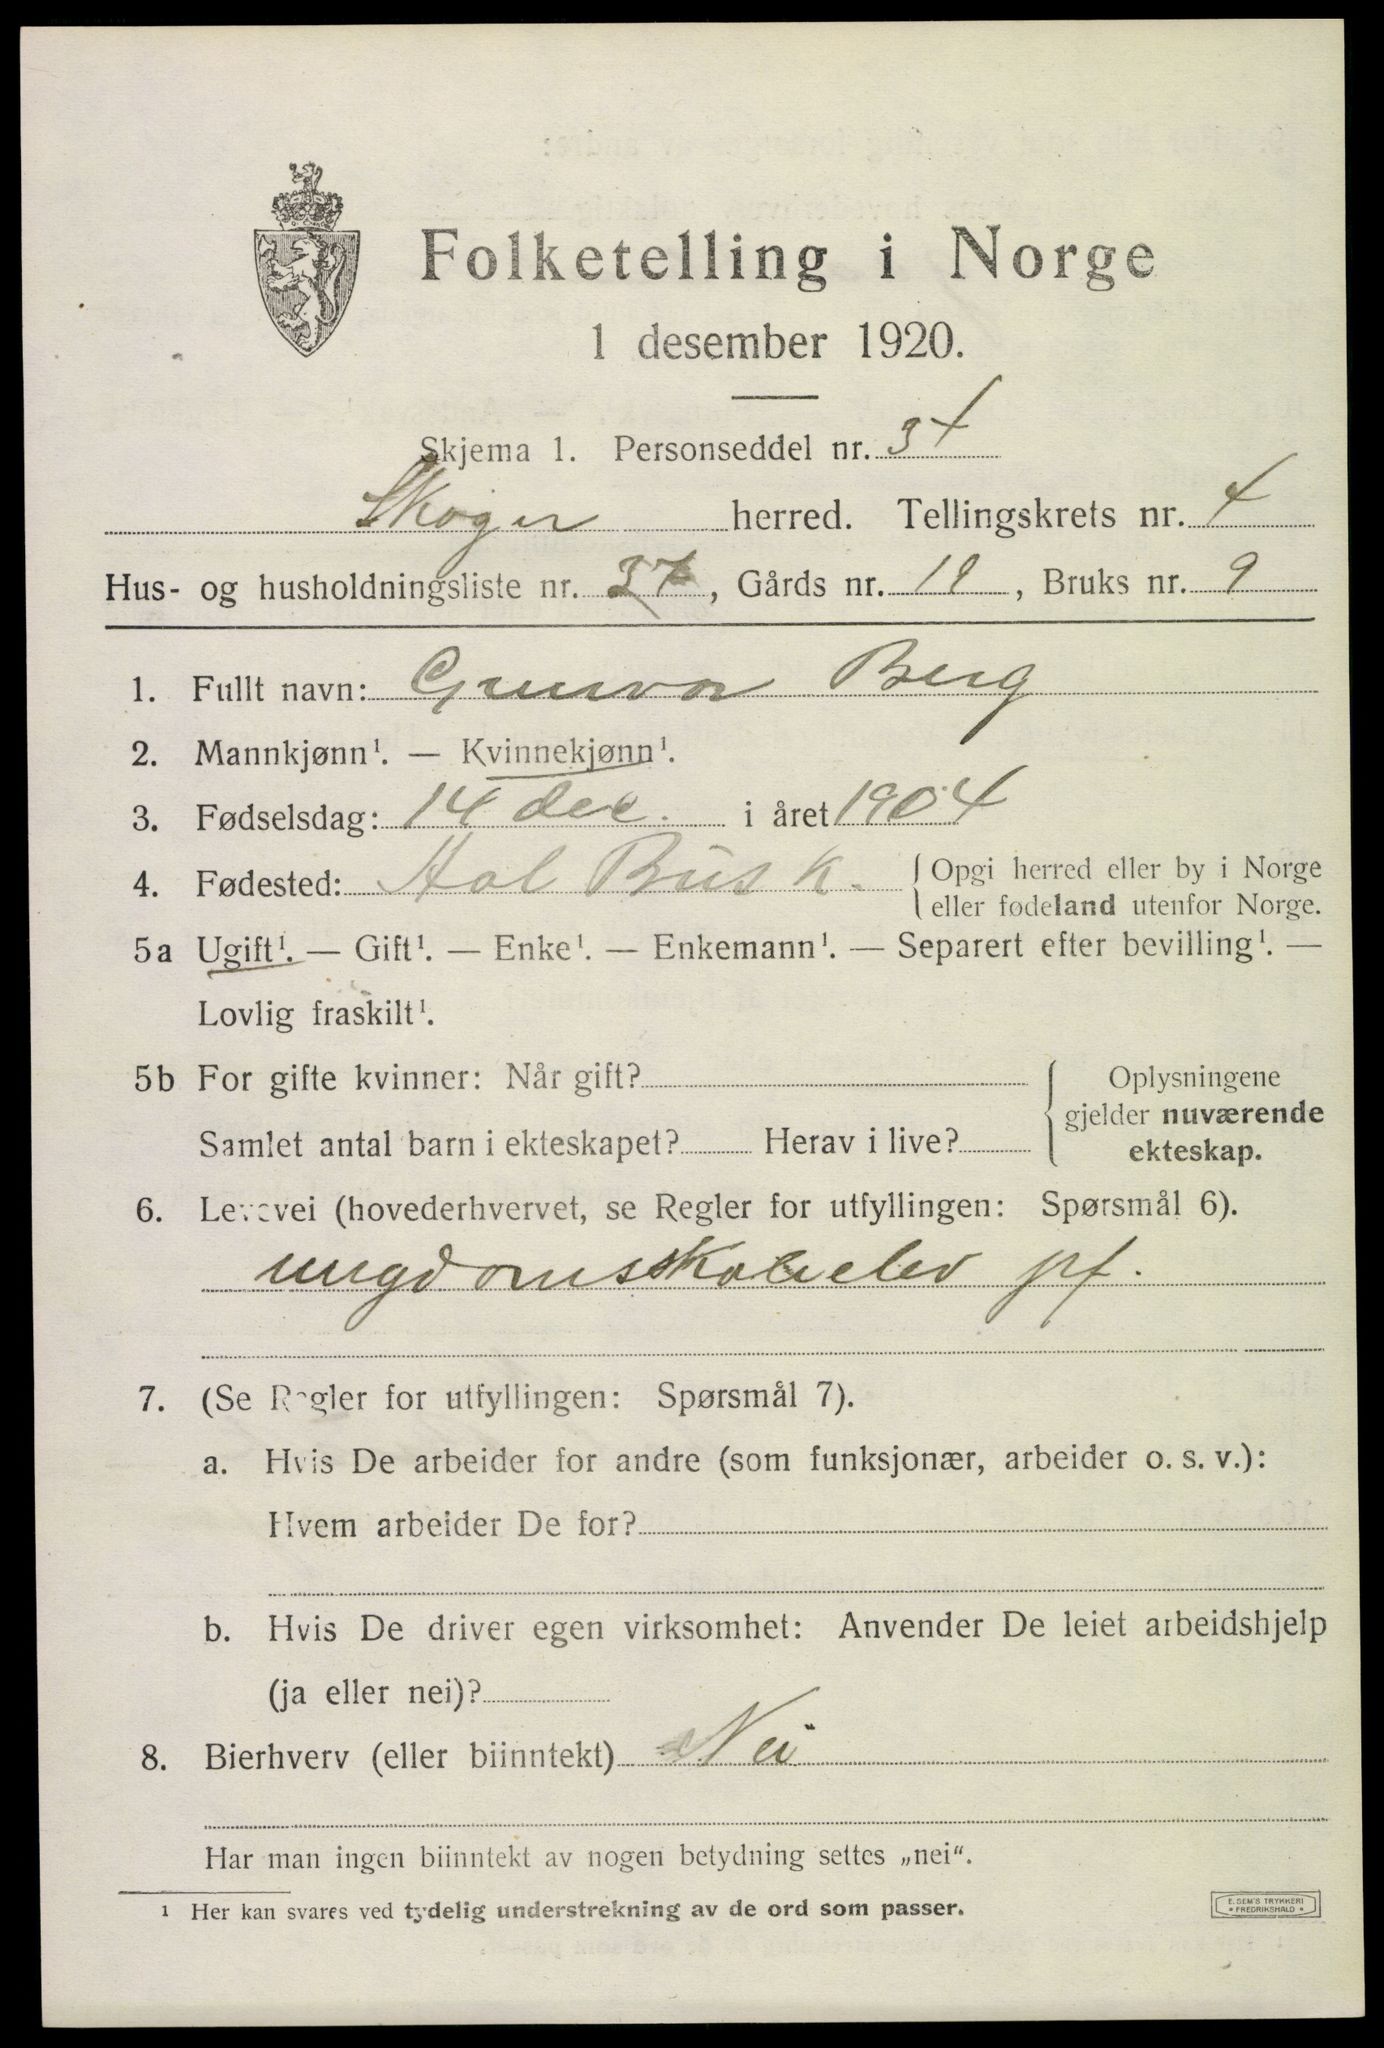 Folketelling i Norge
1 desember 1920.
Skjema 1. Personseddel nr. 34
Skoger herred. Tellingskrets nr. 4
Hus- og husholdningsliste nr. 34, Gårds nr. 19, Bruks nr. 9
1. Fullt navn: Gunvor Berg
2. Mannkjønn¹. — Kvinnekjønn¹.
3. Fødselsdag: 14 dec. i året 1904
4. Fødested: Aal Busk. { Opgi herred eller by i Norge
eller fødeland utenfor Norge.
5a Ugift¹. — Gift¹. — Enke¹. — Enkemann¹. — Separert efter bevilling¹. —
Lovlig fraskilt¹.
5b For gifte kvinner: Når gift? { Oplysningene
gjelder nuværende
Samlet antal barn i ekteskapet? Herav i live? ekteskap.
6. Levevei (hovederhvervet, se Regler for utfyllingen: Spørsmål 6).
ungdomsskoleelev pf.
7. (Se Regler for utfyllingen: Spørsmål 7).
a. Hvis De arbeider for andre (som funksjonær, arbeider o. s. v.):
Hvem arbeider De for?
b. Hvis De driver egen virksomhet: Anvender De leiet arbeidshjelp
(ja eller nei)?
8. Bierhverv (eller biinntekt) Nei
Har man ingen biinntekt av nogen betydning settes „nei“.
¹ Her kan svares ved tydelig understrekning av de ord som passer.
E. SEM'S TRYKKERI
* FREDRIKSHALD *